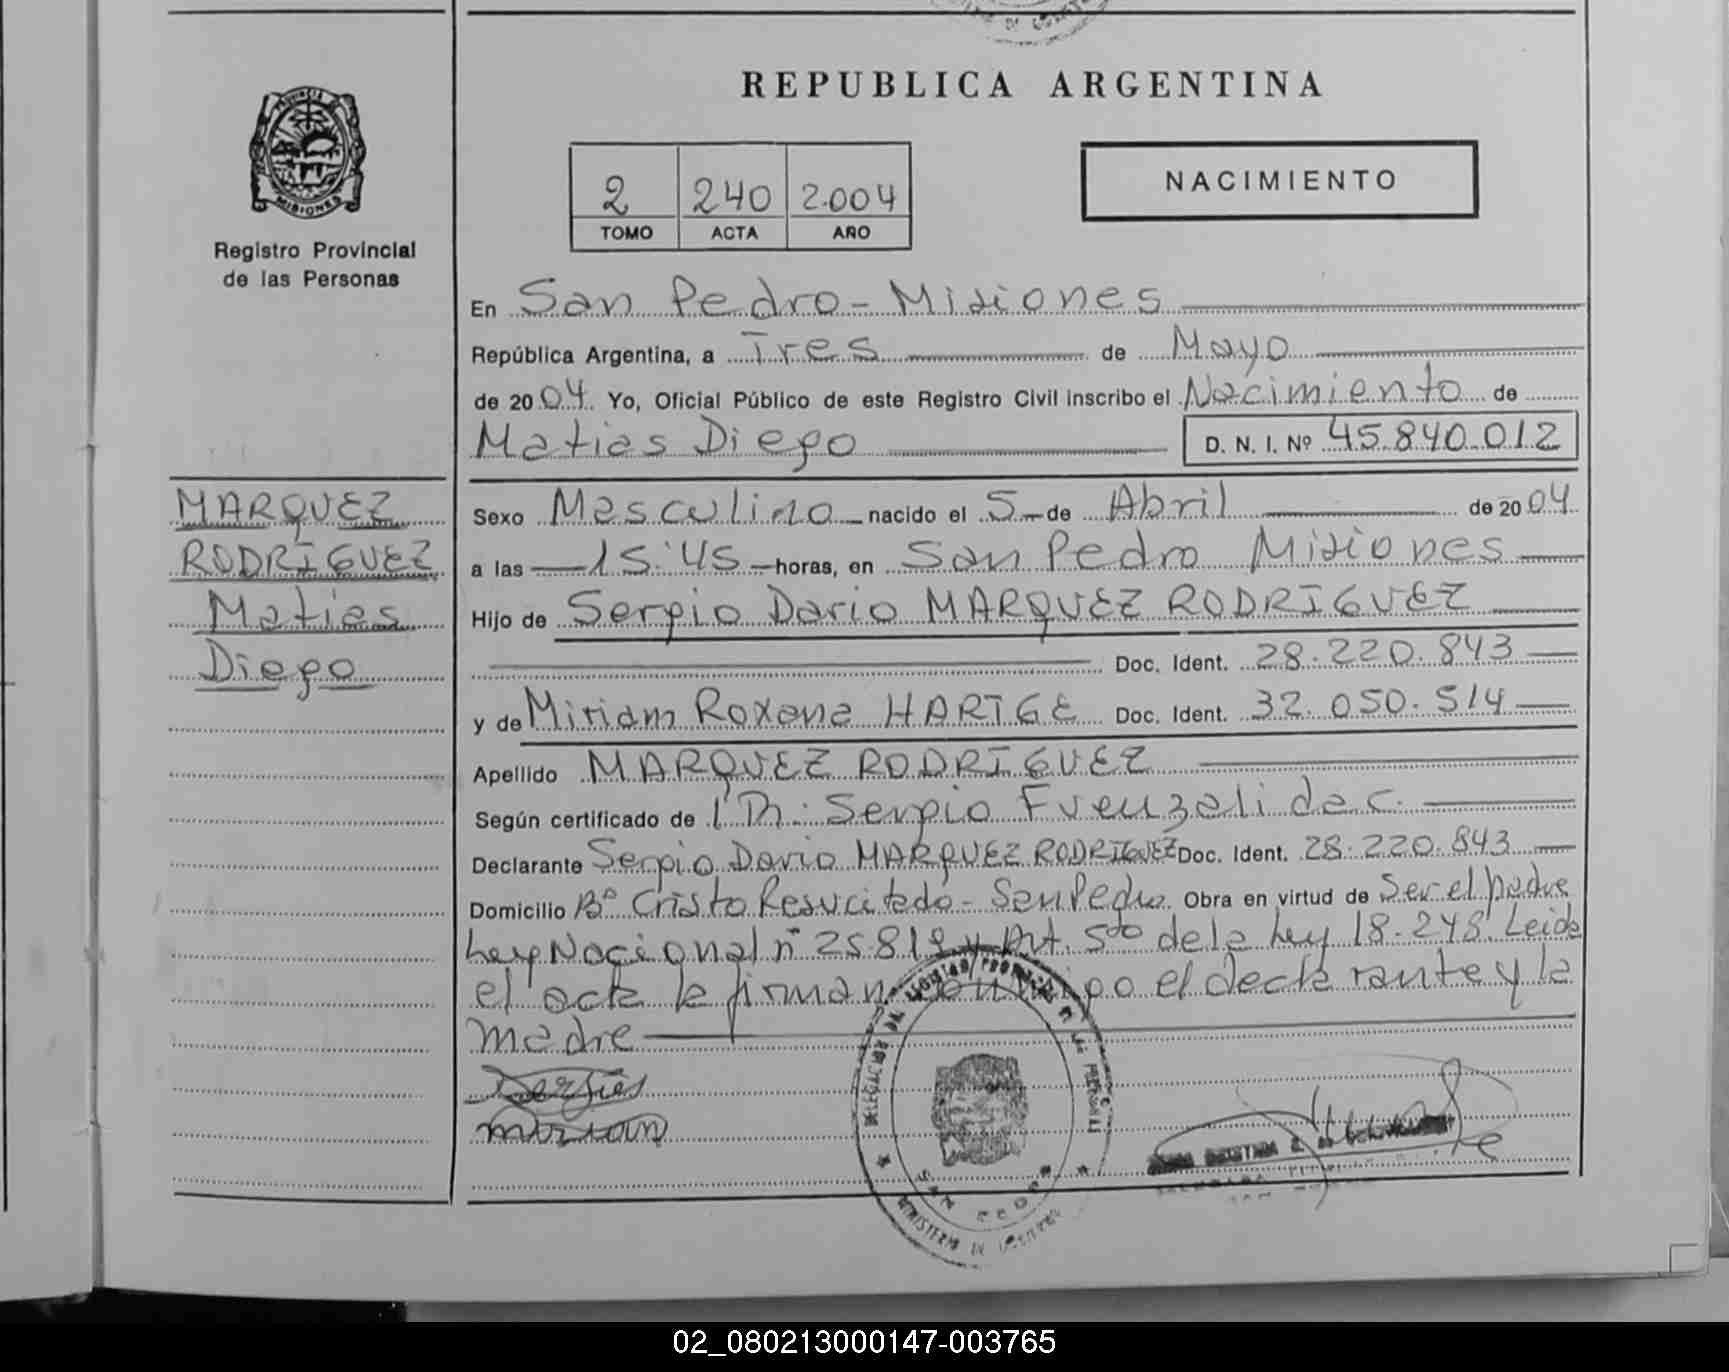 DE
REPUBLICA ARGENTINA
PROVINCIA DE
MISIONES
Registro Provincial
de las Personas
2 240 2.004
TOMO ACTA AÑO
NACIMIENTO
En San Pedro - Misiones
República Argentina, a Tres de Mayo
de 2004 Yo, Oficial Público de este Registro Civil inscribo el Nacimiento de
Matias Diego D. N. I. Nº 45.840.012
MARQUEZ
RODRIGUEZ
Matias
Diego
Sexo Masculino nacido el 5 de Abril de 2004
a las 15:45 horas, en San Pedro Misiones
Hijo de Sergio Dario MARQUEZ RODRIGUEZ
Doc. Ident. 28.220.843
y de Miriam Roxana HARTGE Doc. Ident. 32.050.514
Apellido MARQUEZ RODRIGUEZ
Según certificado de Dr. Sergio Fuenzalida C.
Declarante Sergio Dario MARQUEZ RODRIGUEZ Doc. Ident. 28.220.843
Domicilio Bº Cristo Resucitado - San Pedro. Obra en virtud de Ser el padre
Ley Nacional nº 25.819 y Art. 5to de la Ley 18.248. Leida
el acta la firman conmigo el declarante y la
madre
Sergio
Mirian
DELEGACION DEL REGISTRO PROVINCIAL DE LAS PERSONAS
SAN PEDRO
MINISTERIO DE
02_080213000147-003765